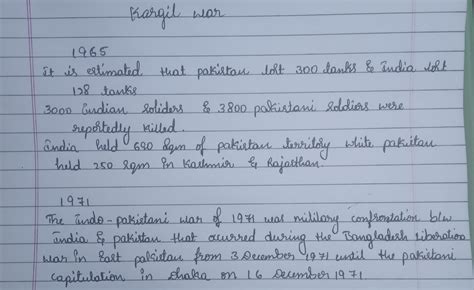 Kargil war
1965
It is estimated that pakistan lost 300 tanks & India lost
128 tanks
3000 Indian soliders & 3800 pakistani soldiors were
reportedly killed.
India held 690 sqm of pakistan territory white pakistan
held 250 sqm in Kashmir & Rajasthan.
1971
The Indo-pakistani war of 1971 was military confrontation b/w
India & pakistan that ocurred during the Bangladesh liberation
war in East pakistan from 3 December 1971 until the pakistani
capitulation in Dhaka on 16 December 1971